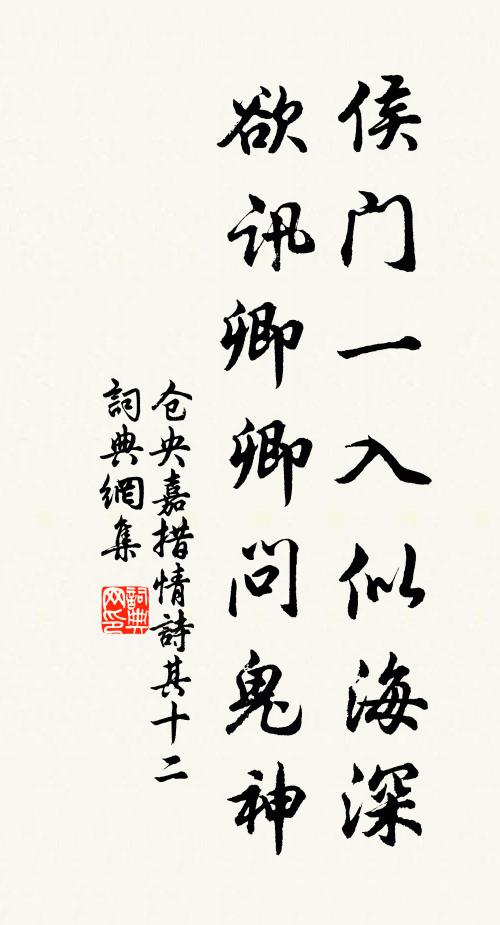 侯门一入似海深
欲讯卿卿问鬼神
仓央嘉措情詩其十二
詞典網集
詞典
网印